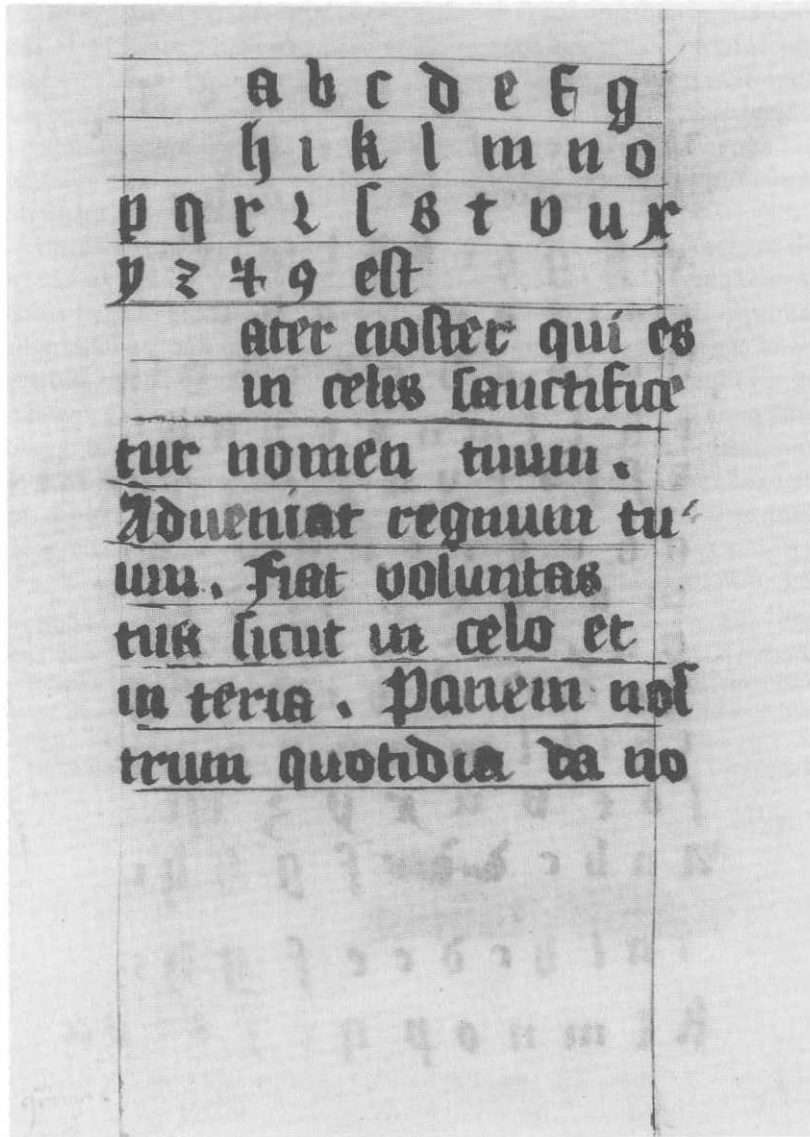 a b c d e f g
h i k l m n o
p q r ꝛ ſ s t v u x
y z ⁊ 9 eſt
ater noſter qui es
in celis ſanctifice
tur nomen tuum.
Adueniat regnum tu
um. Fiat voluntas
tua ſicut in celo et
in terra. Panem noſ
trum quotidia da no